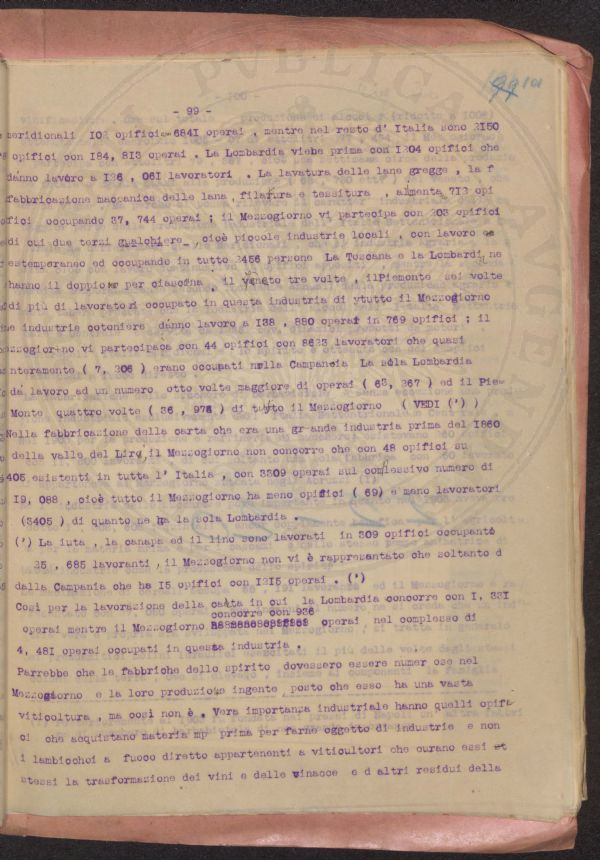 - 99 -
meridionali 102 opifici 6841 operai , mentre nel resto d' Italia sono 2150
opifici con 184, 813 operai . La Lombardia viebe prima con 1204 opifici che
dánno lavoro a 136 , 061 lavoratori . La lavatura delle lane gregge , la f
fabbricazione maccanica delle lana, filatura e tessitura , almenta 712 opi
fici occupando 37, 744 operai ; il Mezzogiorno vi partecipa con 203 opifici
di cui due terzi gualchiere , cioè piccole industrie locali , con lavoro
estemporaneo ed occupando in tutto 2456 persone La Toscana e la Lombardi, ne
hanno il doppio per ciascuna , il veneto tre volte , ilPiemonte sei volte
di più di lavoratori occupato in questa industria di ytutto il Mezzogiorno
ne industrie cotoniere dánno lavoro a 138 , 880 operai in 769 opifici ; il
ezzogiorno vi partecipaca con 44 opifici con 8623 lavoratori che quasi
nteramente ( 7, 206 ) erano occupati nella Campania La sola Lombardia
dà lavoro ad un numero otto volte maggiore di operai ( 63, 267 ) ed il Pie-
Monte quattro volte ( 36 , 978 ) di tutto il Mezzogiorno ( VEDI (') )
Nella fabbricazione della carta che era una grande industria prima del 1860
della valle del Liri, il Mezzogiorno non concorre che con 48 opifici su
405 esistenti in tutta l' Italia , con 3309 operai sul comlessivo numero di
19, 088 , cioè tutto il Mezzogiorno ha meno opifici ( 69) e meno lavoratori
(3405 ) di quanto ne ha la sola Lombardia .
(') La iuta , la canapa ed il lino sono lavorati in 309 opifici occupante
25 , 685 lavoranti , il Mezzogiorno non vi è rappresantato che soltanto d
dalla Campania che ha 15 opifici con 1215 operai . (')
Cosi per la lavorazione della carta in cui la Lombardia concorre con 1, 331
concorre con 936
operai mentre il Mezzogiorno operai nel complesso di
4, 481 operai occupati in questa industria .
Parrebbe che la fabbriche dello spirito dovessero essere numer ose nel
Mezzogiorno e la loro produzione ingente posto che esso ha una vasta
viticoltura , ma così non è . Vera importanza industriale hanno quelli opifi
ci che acquistano materia mp prima per farne oggetto di industrie e non
i lambicchoi a fuoco diretto appartenenti a viticultori che curano essi st
stessi la trasformazione dei vini e delle vinacce e d altri residui della